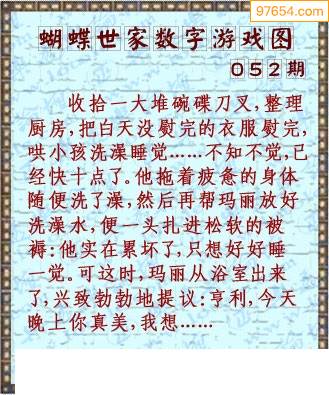 97654.com
蝴蝶世家数字游戏图
052期
收拾一大堆碗碟刀叉,整理
厨房,把白天没熨完的衣服熨完,
哄小孩洗澡睡觉……不知不觉,已
经快十点了。他拖着疲惫的身体
随便洗了澡,然后再帮玛丽放好
洗澡水,便一头扎进松软的被
褥:他实在累坏了,只想好好睡
一觉。可这时,玛丽从浴室出来
了,兴致勃勃地提议:亨利,今天
晚上你真美,我想……